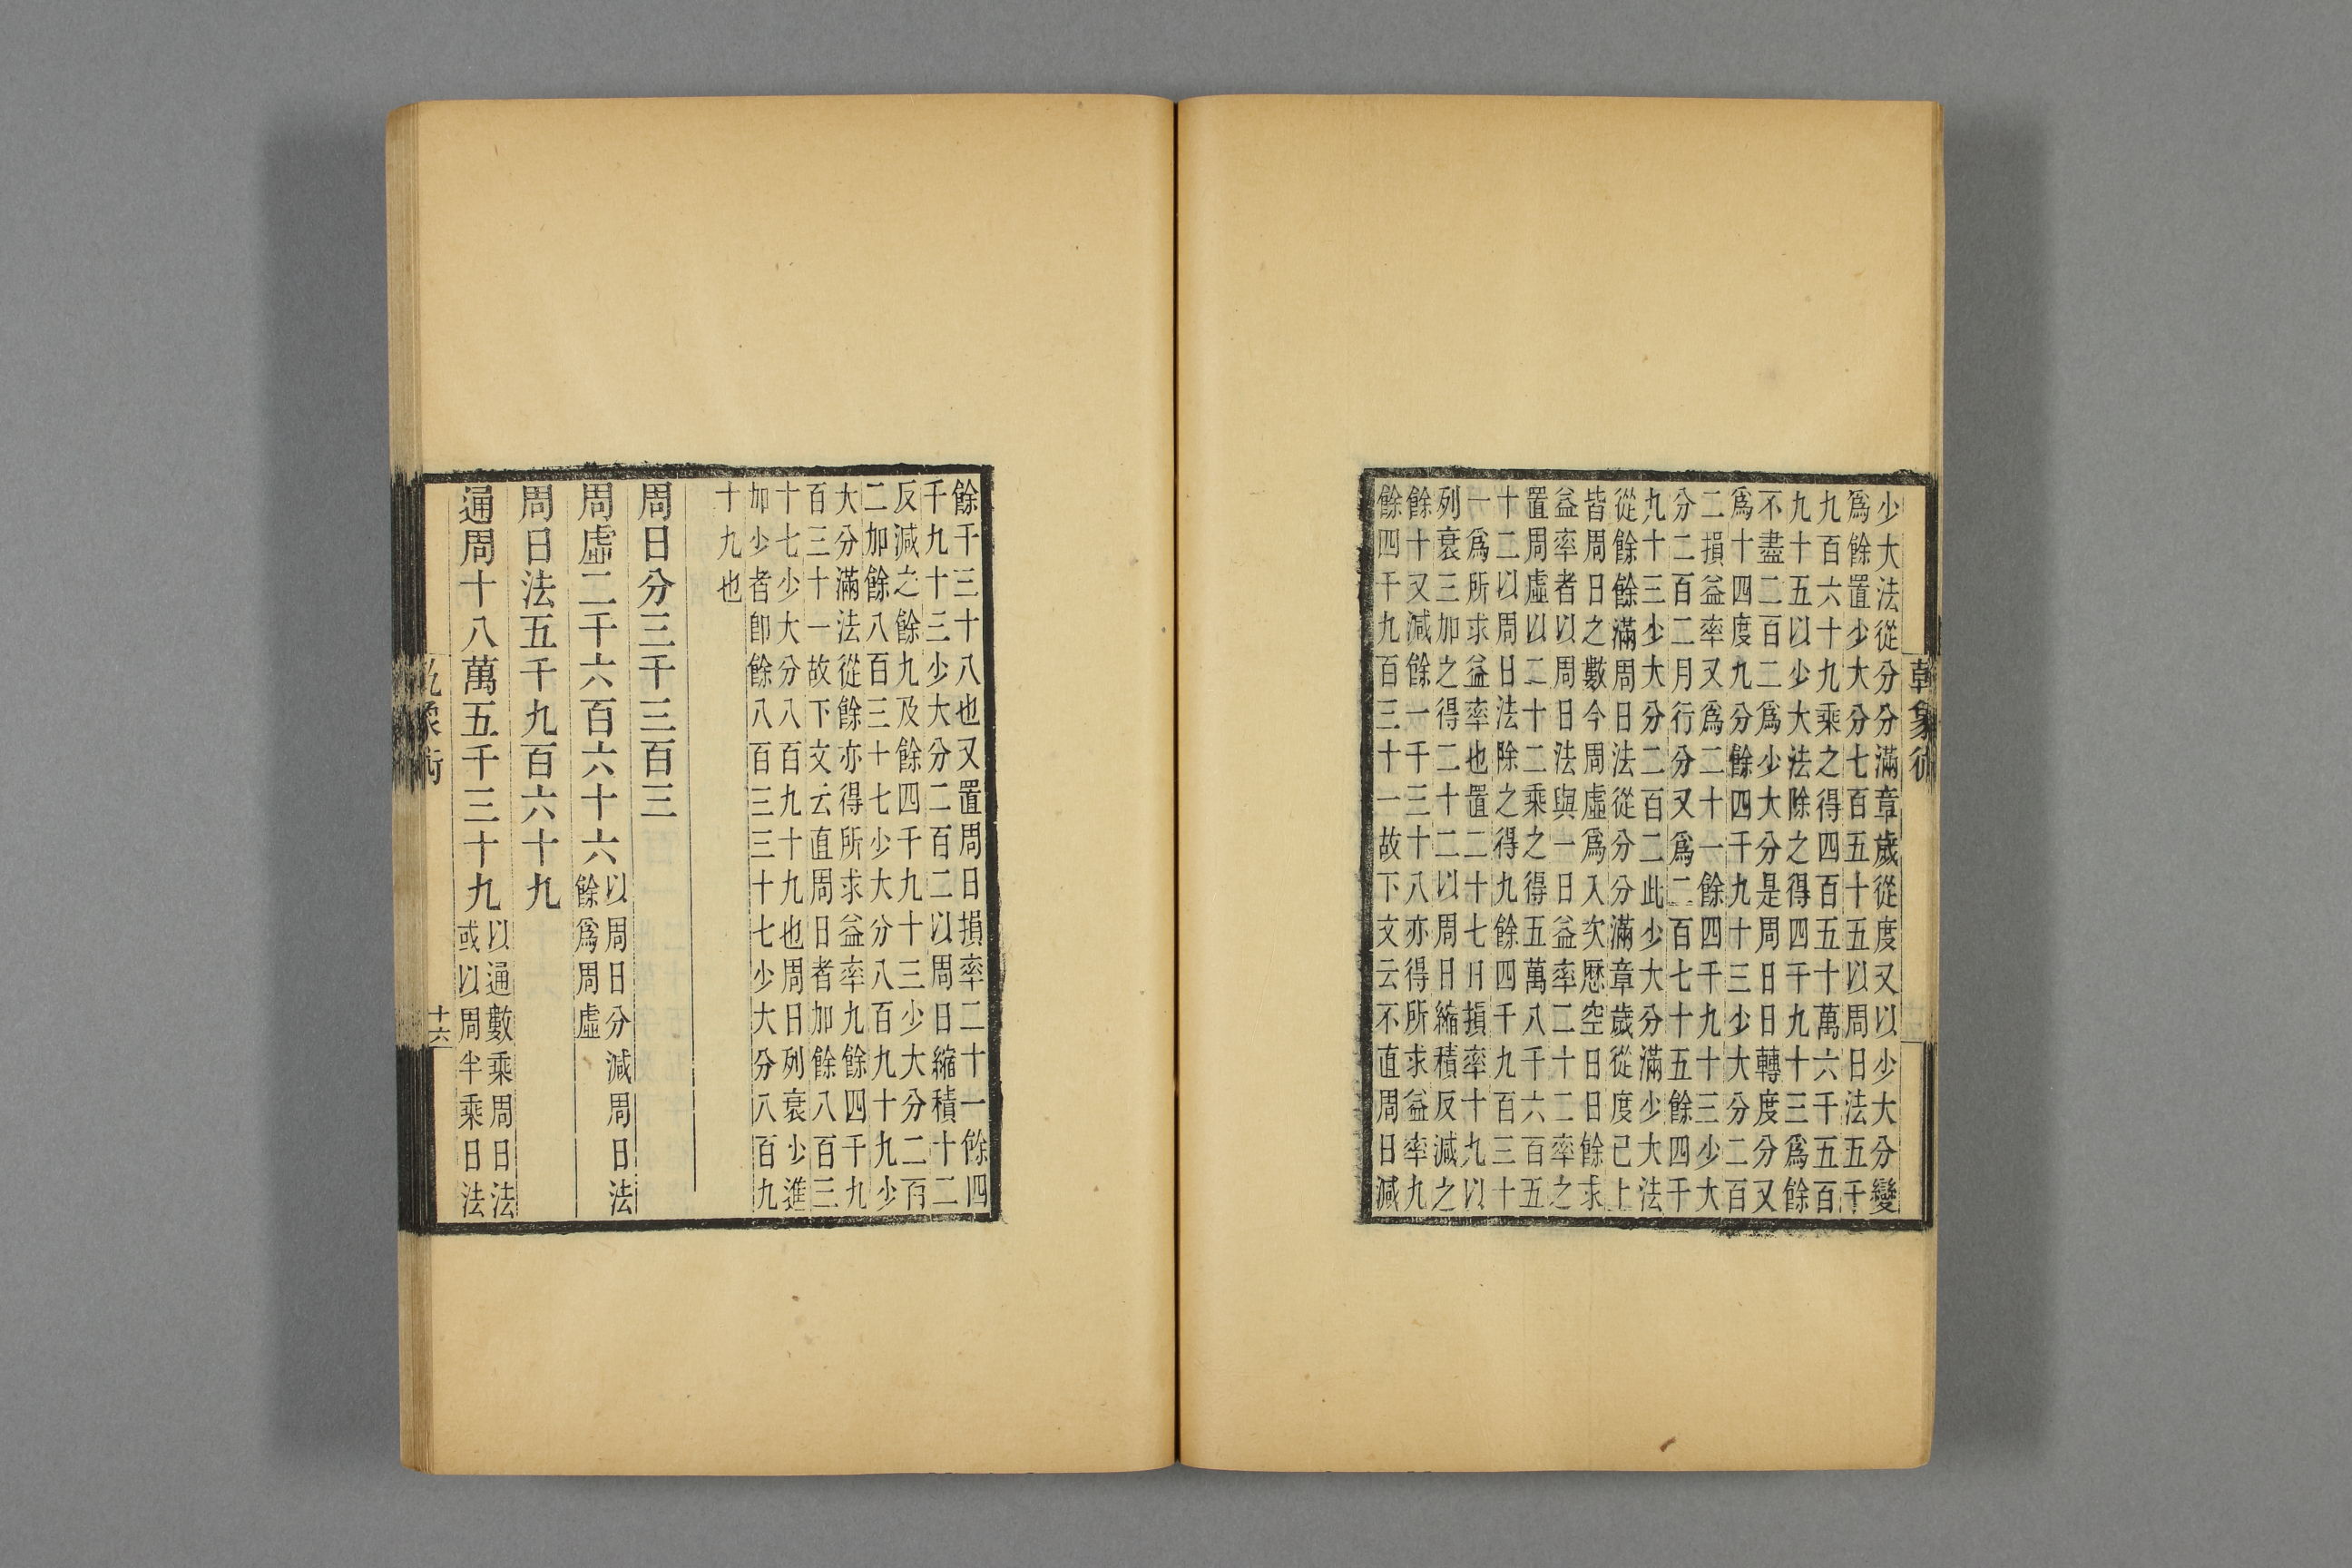 乾象術
少大法從分分滿章歲從度又以少大分變
爲餘置少大分七百五十五以周日法五千
九百六十九乘之得四百五十萬六千五百
九十五以少大法除之得四千九十三爲餘
不盡二百二爲少大分是周日日轉度分又
爲十四度九分餘四千九十三少大分二百
二損益率又爲二十一餘四千九十三少大
分二百二月行分又爲二百七十五餘四千
九十三少大分二百二此少大分滿少大法
從餘餘滿周日法從分分滿章歲從度已上
皆周日之數今周虛爲入次厯空日日餘求
益率者以周日法與一日益率二十二率之
置周虛以二十二乘之得五萬八千六百五
十二以周日法除之得九餘四千九百三十
一爲所求益率也置二十七日損率十九以
列衰三加之得二十二以周日縮積反減之
餘十又減餘一千三十八亦得所求益率九
餘四千九百三十一故下文云不直周日減
餘千三十八也又置周日損率二十一餘四
千九十三少大分二百二以周日縮積十二
反減之餘九及餘四千九十三少大分二百
二加餘八百三十七少大分八百九十九少
大分滿法從餘亦得所求益率九餘四千九
百三十一故下文云直周日者加餘八百三
十七少大分八百九十九也周日列衰少進
加少者卽餘八百三三十七少大分八百九
十九也
周日分三千三百三
周虛二千六百六十六
以周日分減周日法
餘爲周虛
周日法五千九百六十九
通周十八萬五千三十九
以通數乘周日法
或以周半乘日法
乾象術
十六